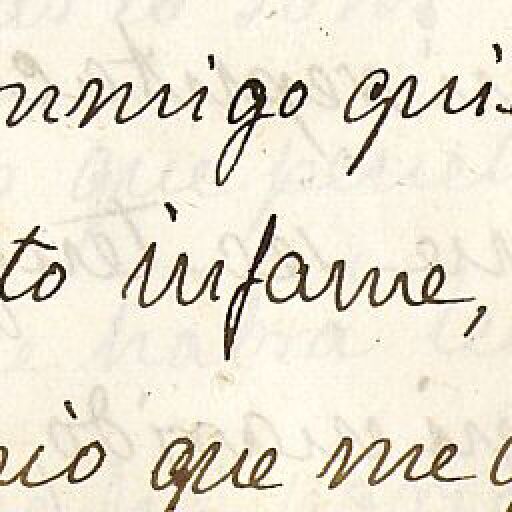 onmigo qui
to infame,
io que me